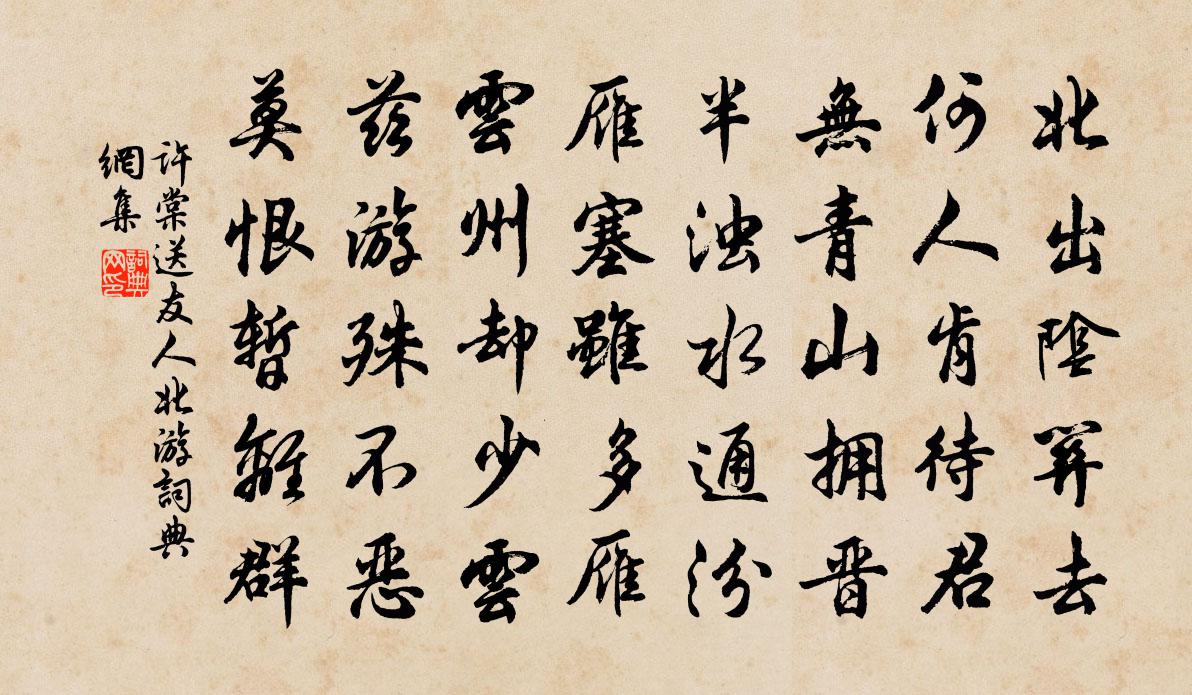 北出陰關去
何人肯待君
無青山拥晋
半浊水通汾
雁塞雖多雁
雲州却少雲
兹游殊不恶
莫恨暫離群
許棠送友人北游詞典
網集
詞典
网印